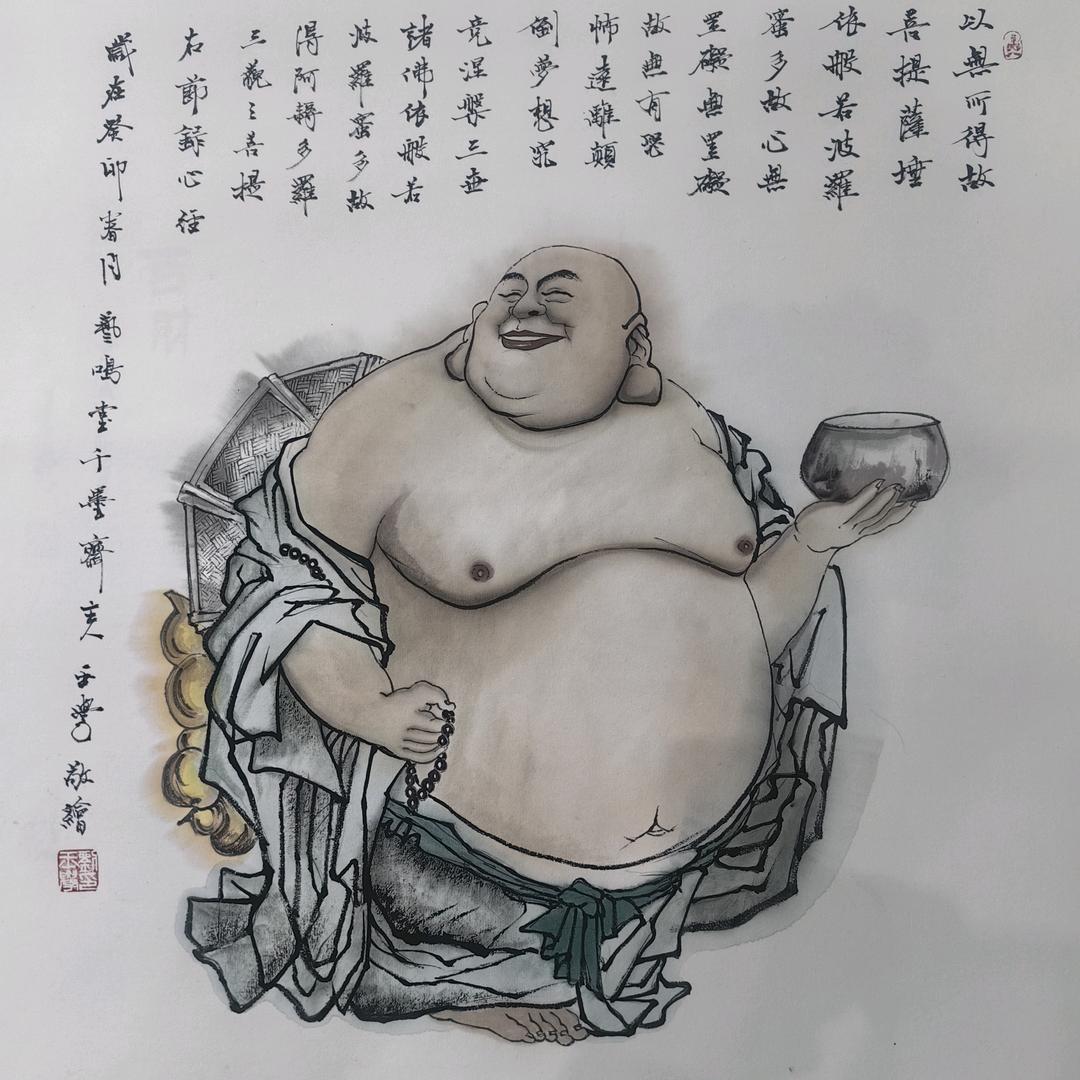 以無所得故
菩提薩埵
依般若波羅
蜜多故心無
罣礙無罣礙
故無有恐
怖遠離顛
倒夢想究
竟涅槃三世
諸佛依般若
波羅蜜多故
得阿耨多羅
三藐三菩提
右節錄心經
歲在癸卯春月藝鳴堂千墨齋主人敬繪